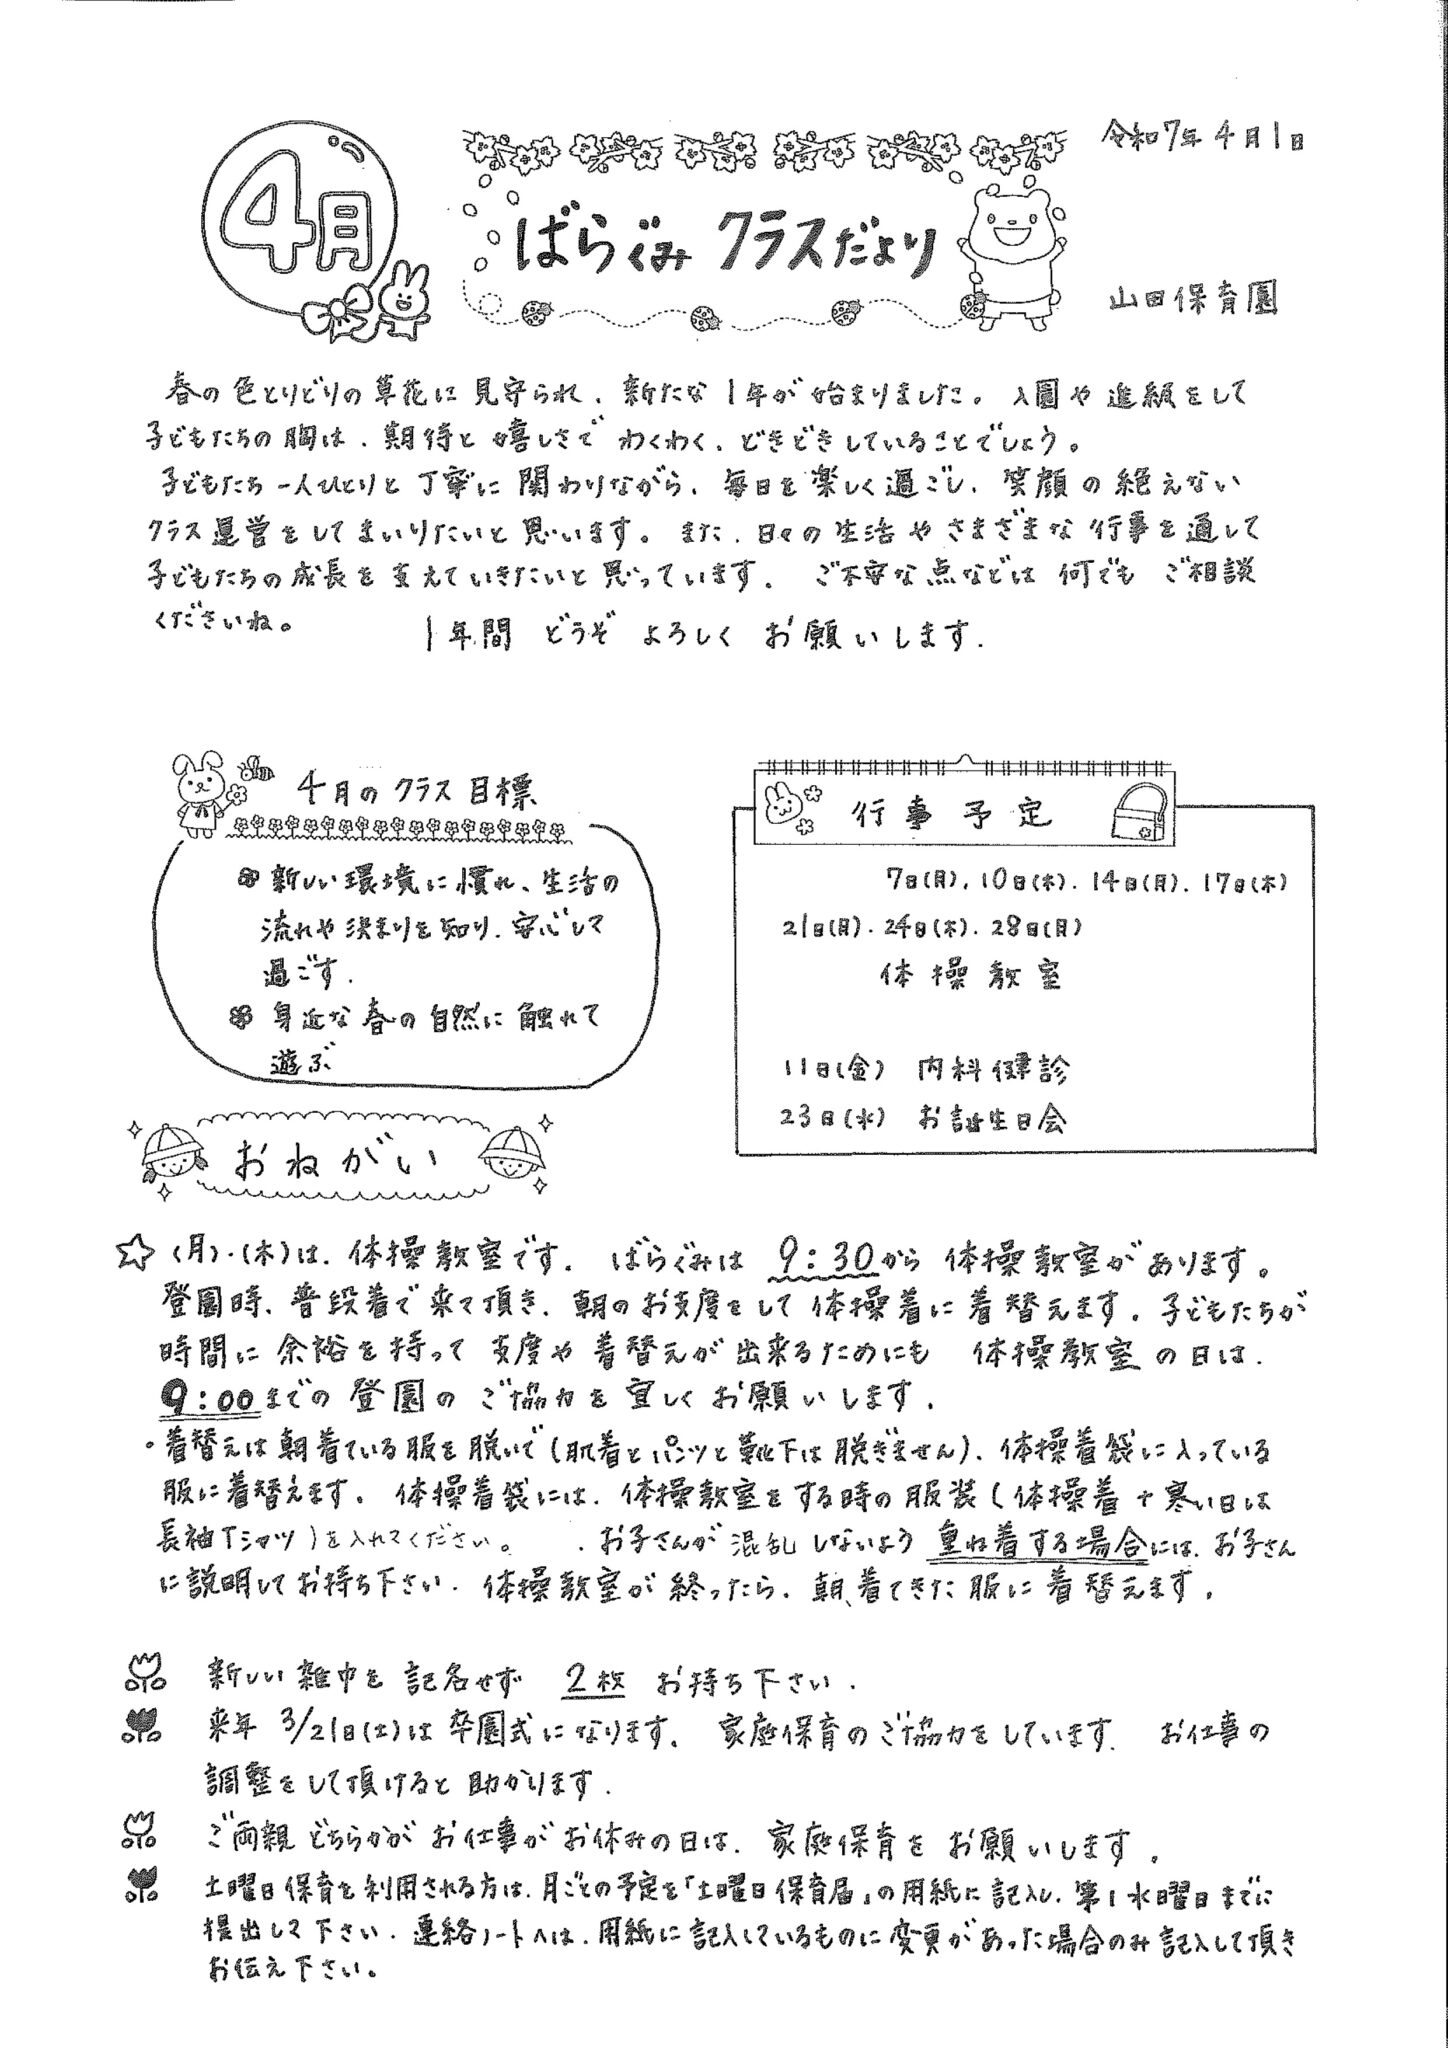 令和7年4月1日
4月
ばらぐみ クラスだより
山田保育園
春の色とりどりの草花に見守られ、新たな1年が始まりました。入園や進級をして
子どもたちの胸は、期待と嬉しさでわくわく、どきどきしていることでしょう。
子どもたち一人ひとりと丁寧に関わりながら、毎日を楽しく過ごし、笑顔の絶えない
クラス運営をしてまいりたいと思います。また、日々の生活やさまざまな行事を通して
子どもたちの成長を支えていきたいと思っています。ご不安な点などは何でもご相談
くださいね。 1年間どうぞよろしくお願いします。
4月のクラス目標
新しい環境に慣れ、生活の
流れや決まりを知り、安心して
過ごす。
身近な春の自然に触れて
遊ぶ
行事予定
7日(月)、10日(木)、14日(月)、17日(木)
21日(月)、24日(木)、28日(月)
体操教室
11日(金) 内科健診
23日(水) お誕生日会
おねがい
☆(月)・(木)は、体操教室です。ばらぐみは9:30から体操教室があります。
登園時、普段着で来て頂き、朝のお支度をして体操着に着替えます。子どもたちが
時間に余裕を持って支度や着替えが出来るためにも 体操教室の日は、
9:00までの登園のご協力を宜しくお願いします。
・着替えは朝着ている服を脱いで(肌着とパンツと靴下は脱ぎません)、体操着袋に入っている
服に着替えます。体操着袋には、体操教室をする時の服装(体操着+寒い日は
長袖Tシャツ)を入れてください。 ・お子さんが混乱しないよう重ね着する場合には、お子さん
に説明してお持ち下さい。体操教室が終ったら、朝、着てきた服に着替えます。
新しい雑巾を記名せず 2枚 お持ち下さい。
来年 3/21日(土)は卒園式になります。家庭保育のご協力をしています。お仕事の
調整をして頂けると助かります。
ご両親どちらかがお仕事がお休みの日は、家庭保育をお願いします。
土曜日保育を利用される方は、月ごとの予定を「土曜日保育届」の用紙に記入し、第1水曜日までに
提出して下さい。連絡ノートへは、用紙に記入しているものに変更があった場合のみ記入して頂き
お伝え下さい。